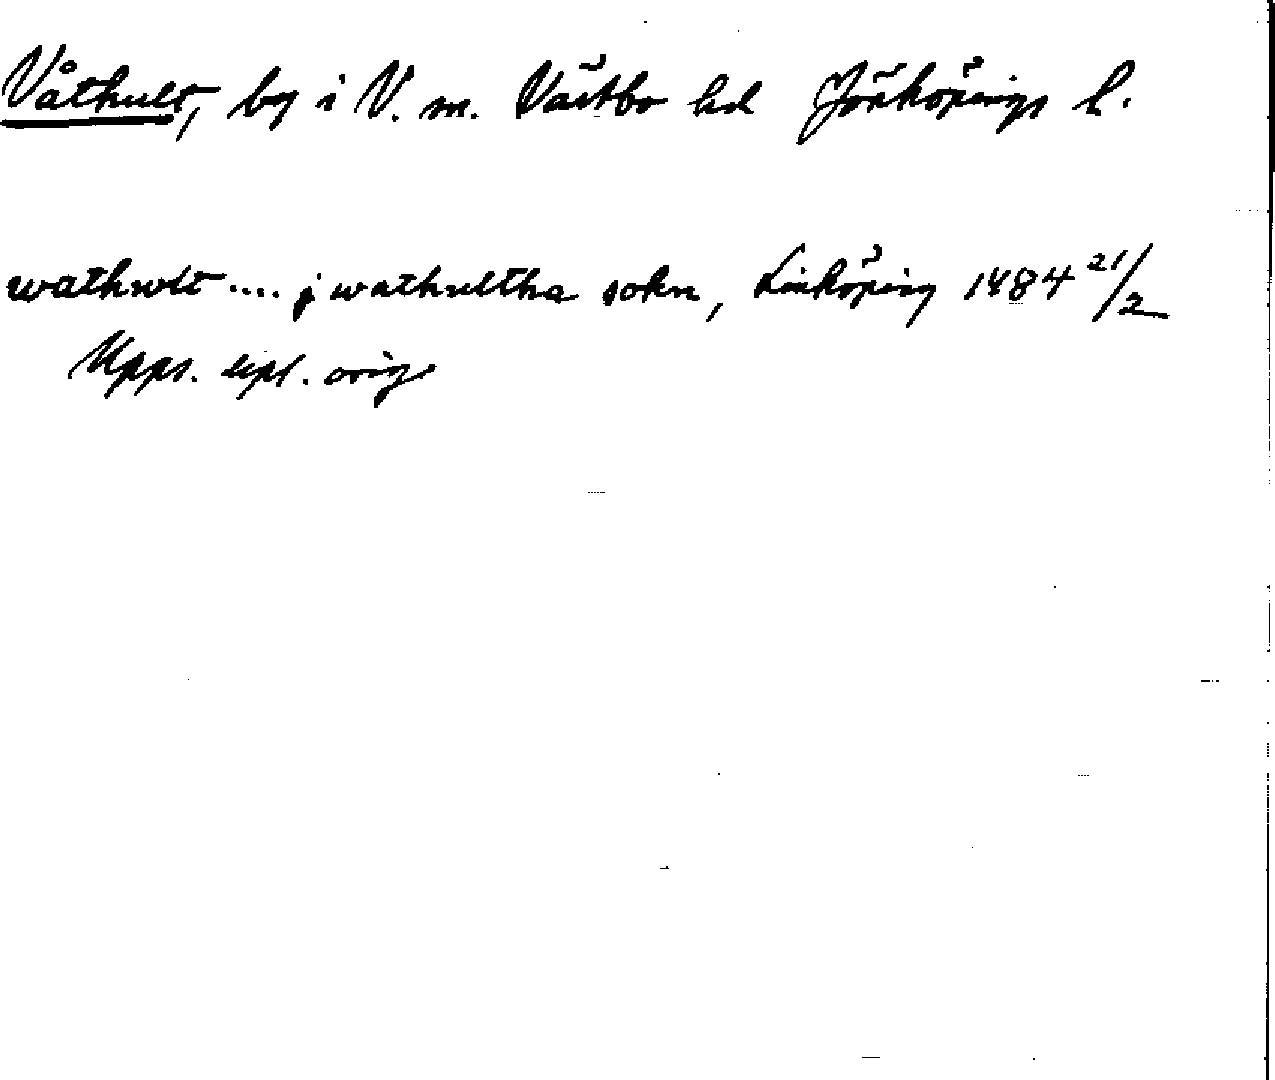 Våthult, by i V. sn. Västbo hd Jönköpings l.
wathwlt .... j wathultha sokn, Linköping 1484 21/2
Upps. epl. orig